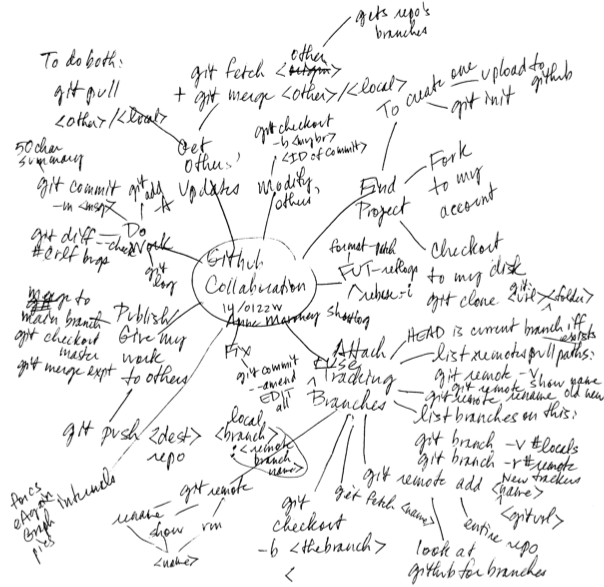 gets repo's
branches
other
git fetch <origin>
+ git merge <other>/<local>
To do both:
git pull
<other>/<local>
Get
Others'
Updates
git checkout
-b <mybr>
<ID of commit>
modify
others'
To create one
upload to
github
git init
End
Project
Fork
to my
account
checkout
to my disk
git clone <url> <folder>
50 char
summary
git commit
-m <msg>
git add
-A
Do
Work
git diff --check
#crlf bugs
git
log
Github
Collaboration
14/0122W
Anne Maroney
shortlog
format-patch
FUT-reflogs
rebase -i
merge to
main branch
git checkout
master
git merge expt
Publish/
Give my
work
to others
git push <dest> <branch>
repo
local
:<remote
branch
name>
Fix
git commit
--amend
EDIT
all
Attach
Use
Tracking
Branches
HEAD is current branch iff
exists
list remotes pull paths:
git remote -v
git remote show name
git remote rename old new
list branches on this:
git branch -v #locals
git branch -r #remote
New trackers
git remote add <name>
<giturl>
entire repo
look at
github for branches
git fetch <name>
git
checkout
-b <thebranch>
<
git remote
rename
show
rm
<name>
internals
pics